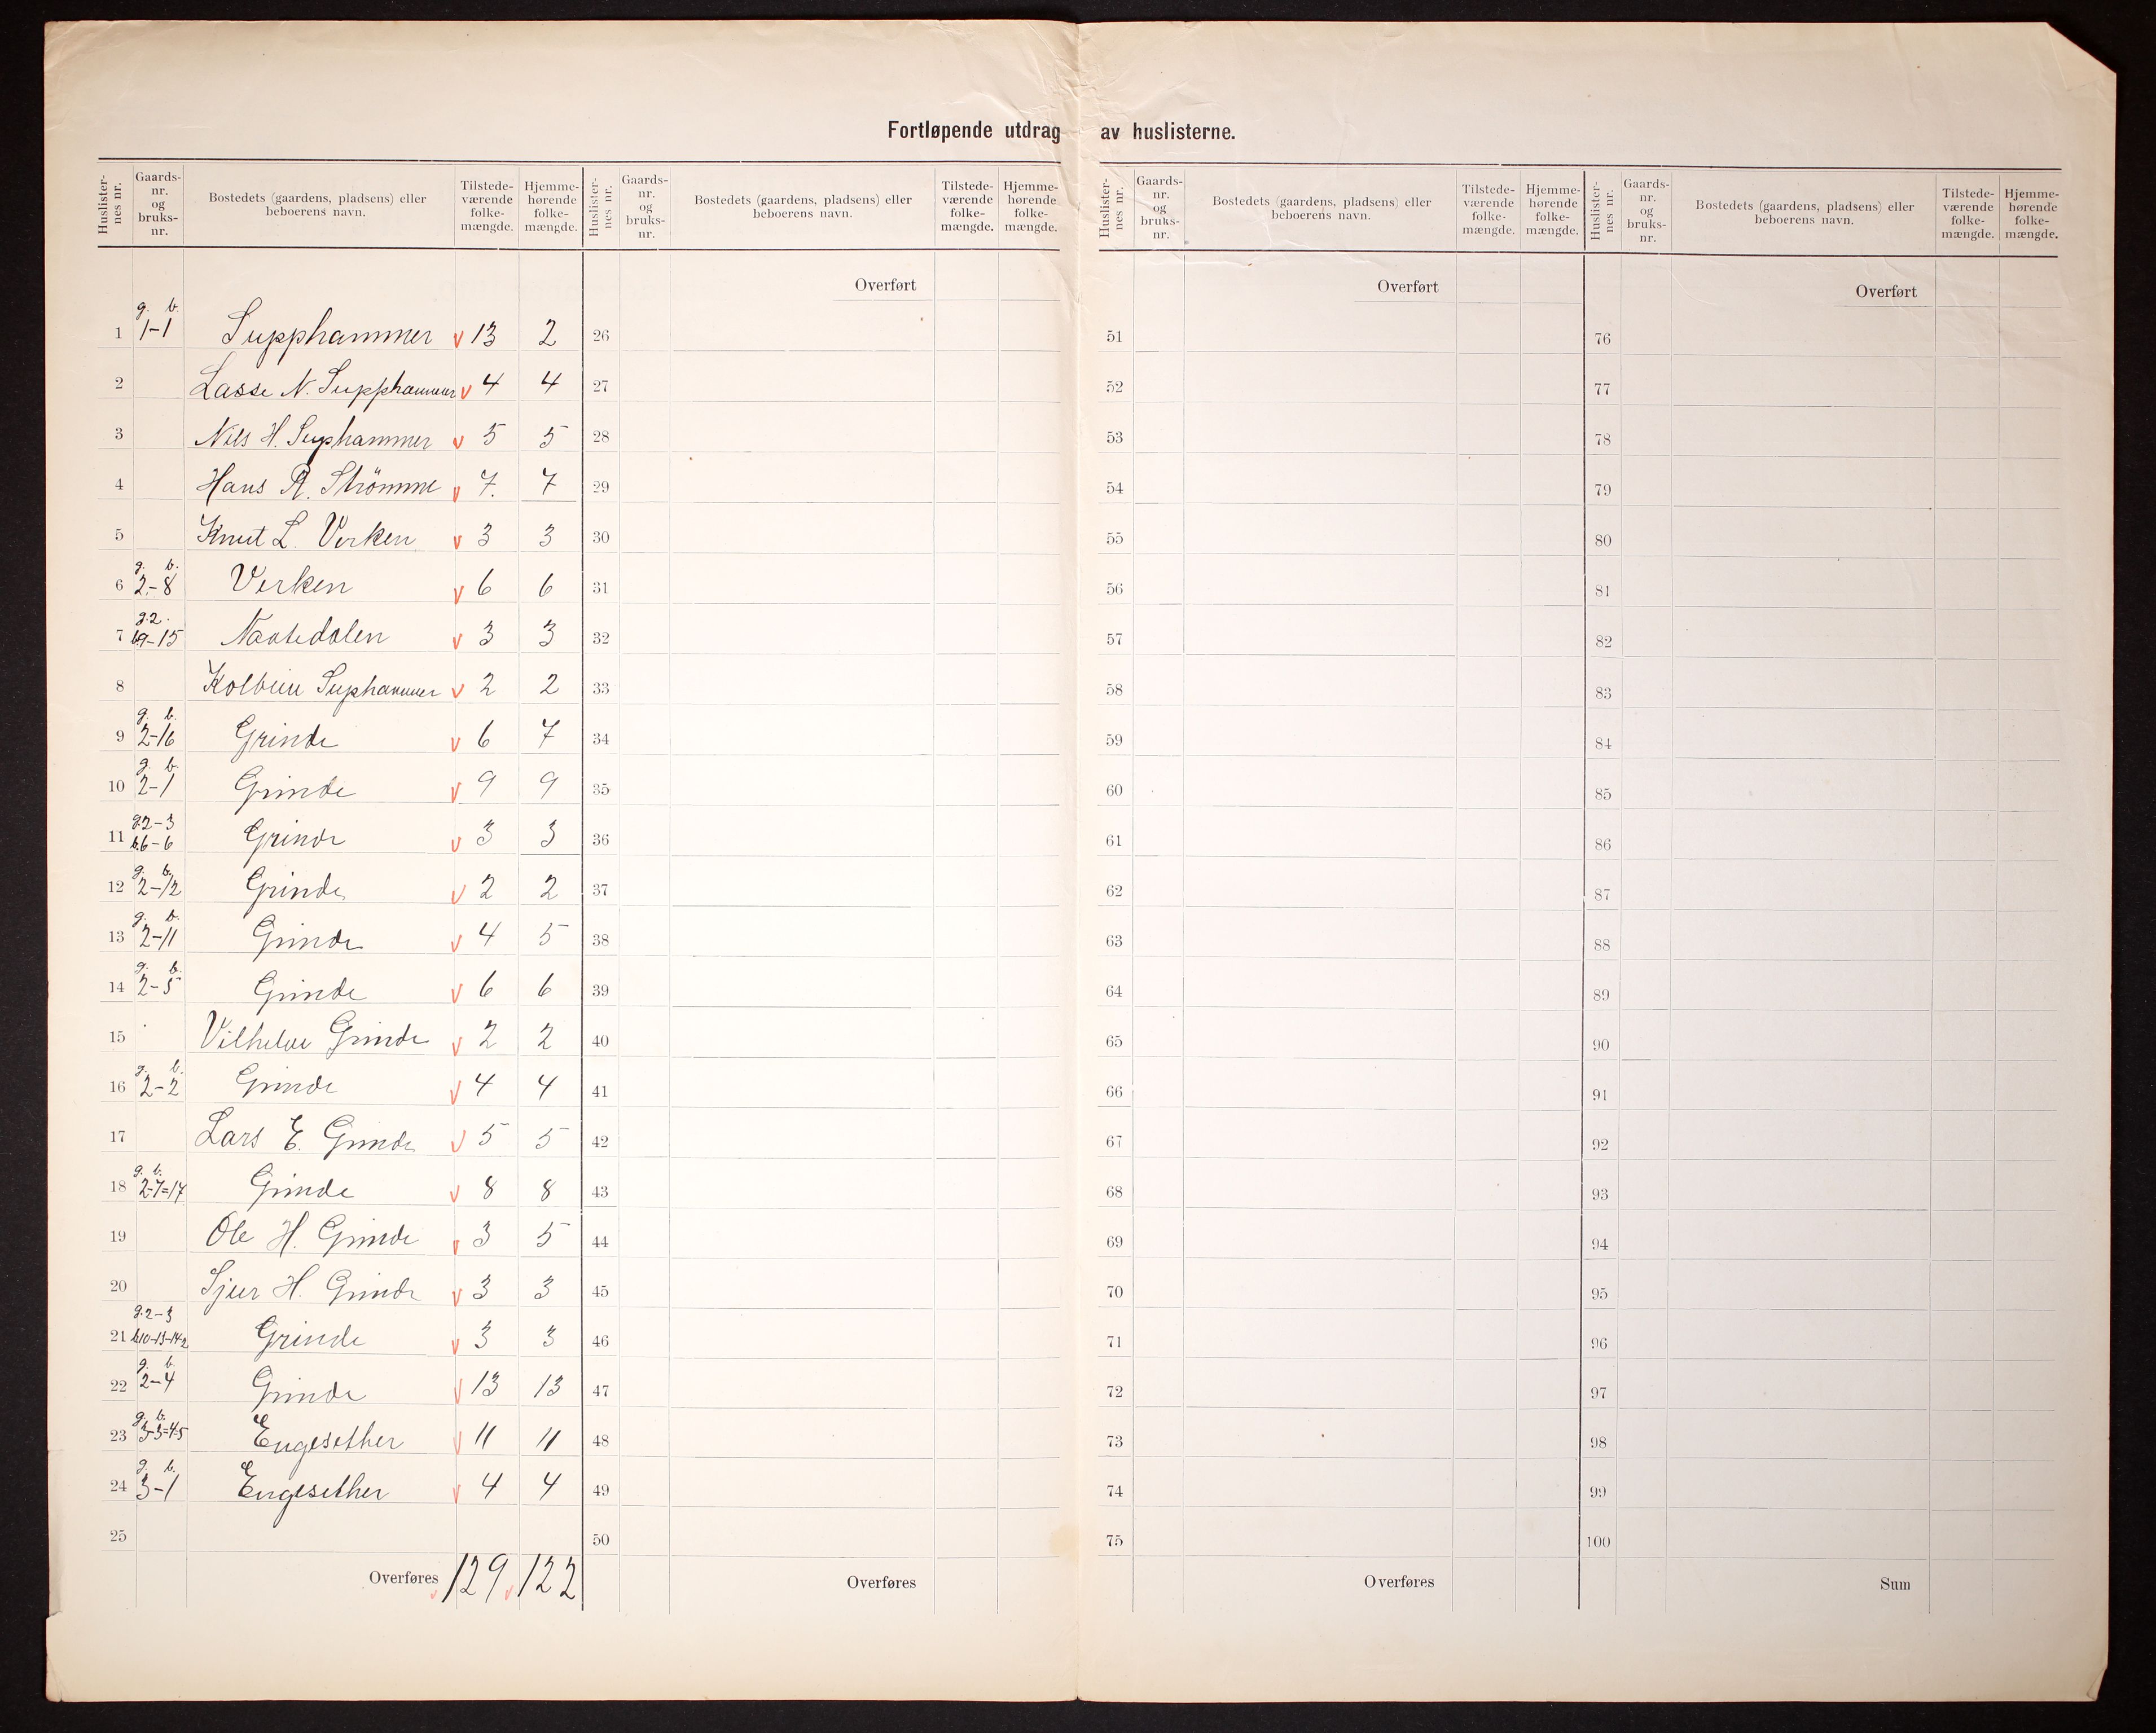 Fortløpende utdrag av huslisterne.
Huslister-nes nr. Gaards-nr. og bruks-nr. Bostedets (gaardens, pladsens) eller beboerens navn. Tilstede-værende folke-mængde. Hjemme-hørende folke-mængde. Huslister-nes nr. Gaards-nr. og bruks-nr. Bostedets (gaardens, pladsens) eller beboerens navn. Tilstede-værende folke-mængde. Hjemme-hørende folke-mængde. Huslister-nes nr. Gaards-nr. og bruks-nr. Bostedets (gaardens, pladsens) eller beboerens navn. Tilstede-værende folke-mængde. Hjemme-hørende folke-mængde. Huslister-nes nr. Gaards-nr. og bruks-nr. Bostedets (gaardens, pladsens) eller beboerens navn. Tilstede-værende folke-mængde. Hjemme-hørende folke-mængde.
Overført Overført Overført
g. b.
1 1-1 Supphammer v 13 2 26 51 76
2 Lasse N. Supphammer v 4 4 27 52 77
3 Nils H. Suphammer v 5 5 28 53 78
4 Hans R. Strömme v 7. 7 29 54 79
5 Knut L. Virken v 3 3 30 55 80
g. b.
6 2-8 Virken v 6 6 31 56 81
g.2.
7 b9-15 Naatedalen v 3 3 32 57 82
8 Kolbein Suphammer v 2 2 33 58 83
g. b.
9 2-16 Grinde v 6 7 34 59 84
g. b.
10 2-1 Grinde v 9 9 35 60 85
g.2-3
11 b.6-6 Grinde v 3 3 36 61 86
g. b.
12 2-12 Grinde v 2 2 37 62 87
g. b.
13 2-11 Grinde v 4 5 38 63 88
g. b.
14 2-5 Grinde v 6 6 39 64 89
15 Vilhelm Grinde v 2 2 40 65 90
g. b.
16 2-2 Grinde v 4 4 41 66 91
17 Lars E. Grinde v 5 5 42 67 92
g. b.
18 2-7=17 Grinde v 8 8 43 68 93
19 Ole H. Grinde v 3 5 44 69 94
20 Sjur H. Grinde v 3 3 45 70 95
g.2-3
21 b10-13-14-2 Grinde v 3 3 46 71 96
g. b.
22 2-4 Grinde v 13 13 47 72 97
g. b.
23 3-3=4-5 Engesether v 11 11 48 73 98
g. b.
24 3-1 Engesether v 4 4 49 74 99
25 50 75 100
Overføres v 129 v 122 Overføres Overføres Sum